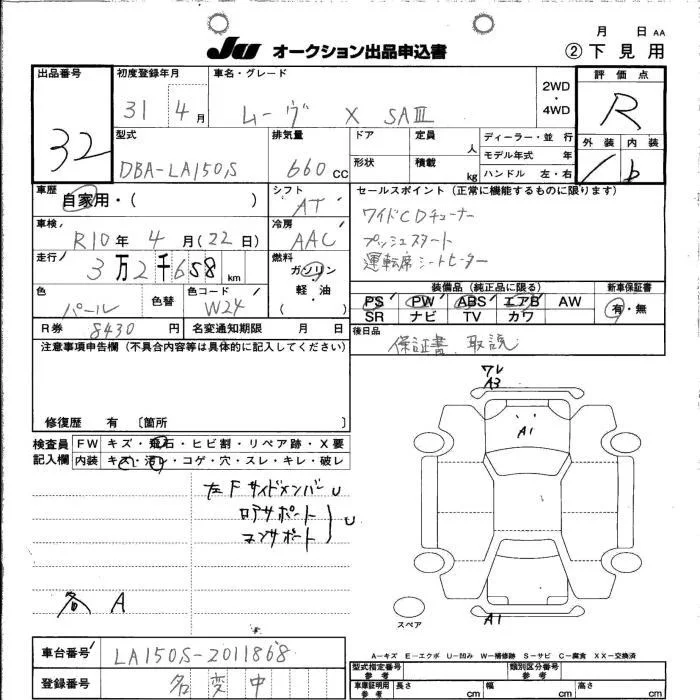 月 日 AA
JU オークション出品申込書
② 下見用
出品番号
32
初度登録年月
31 4月
車名・グレード
ムーヴ X SAⅢ
2WD・4WD
評価点
R
外装 内装
b
型式
DBA-LA150S
排気量
660cc
ドア
形状
定員 人
積載 kg
ディーラー・並行
モデル年式 年
ハンドル 左・右
車歴
自家用・( )
シフト
AT
セールスポイント(正常に機能するものに限ります)
ワイドCDチューナー
プッシュスタート
運転席シートヒーター
車検
R10年 4月(22日)
冷房
AAC
走行
3万2千658km
燃料
ガソリン
軽・油
( )
色
パール
色替
色コード
W24
装備品(純正品に限る)
PS PW ABS エアB AW
SR ナビ TV カワ
新車保証書
有・無
R券 8430円
名変通知期限 月 日
後日品
保証書、取説
注意事項申告欄(不具合内容等は具体的に記入してください)
修復歴 有 〔箇所 〕
検査員記入欄
FW キズ・飛石・ヒビ割・リペア跡・X要
内装 キズ・汚れ・コゲ・穴・スレ・キレ・破レ
左Fサイドメンバー U
ロアサポート
コンサポート
U
各 A
ワレ
A3
A1
A1
スペア
A−キズ E−エクボ U−凹み W−補修跡 S−サビ C−腐食 XX−交換済
車台番号
LA150S-2011868
登録番号
名変中
型式指定番号 参考
類別区分番号 参考
車庫証明用 参考
長さ cm
幅 cm
cm